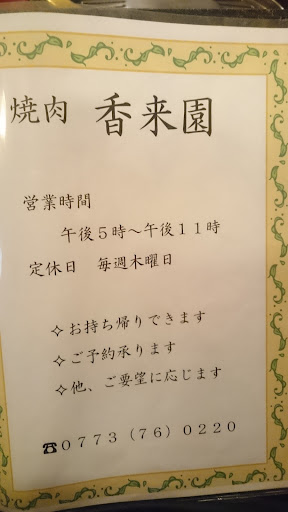 焼肉 香来園
営業時間
午後５時～午後１１時
定休日 毎週木曜日
✧お持ち帰りできます
✧ご予約承ります
✧他、ご要望に応じます
☎０７７３（７６）０２２０